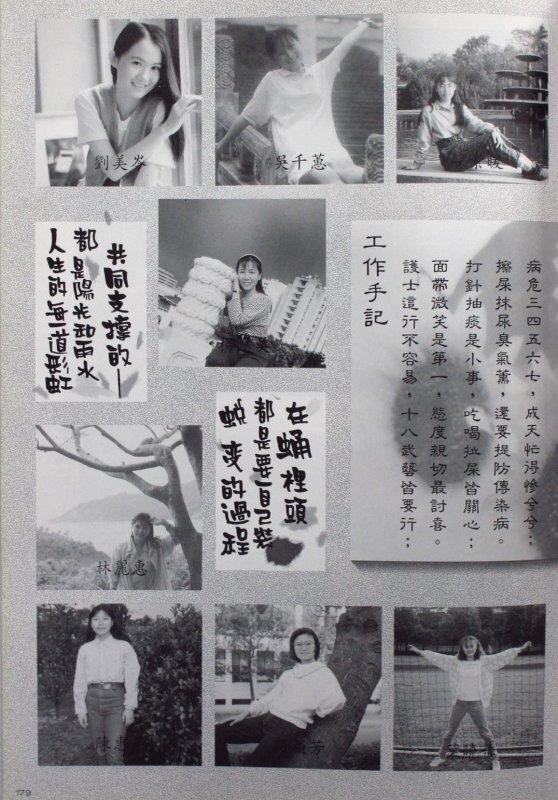 劉美
吳千蕙
共同支撐的—
都是陽光和雨水
人生的每一道彩虹
工作手記
病危三四五六七，成天忙得慘兮兮；
擦屎抹尿臭氣薰，還要提防傳染病。
打針抽痰是小事，吃喝拉屎皆關心；
面帶微笑是第一，態度親切最討喜。
護士這行不容易，十八武藝皆要行；
在蛹裡頭
都是要自己
蛻變的過程
林麗惠
陳惠
芳
179